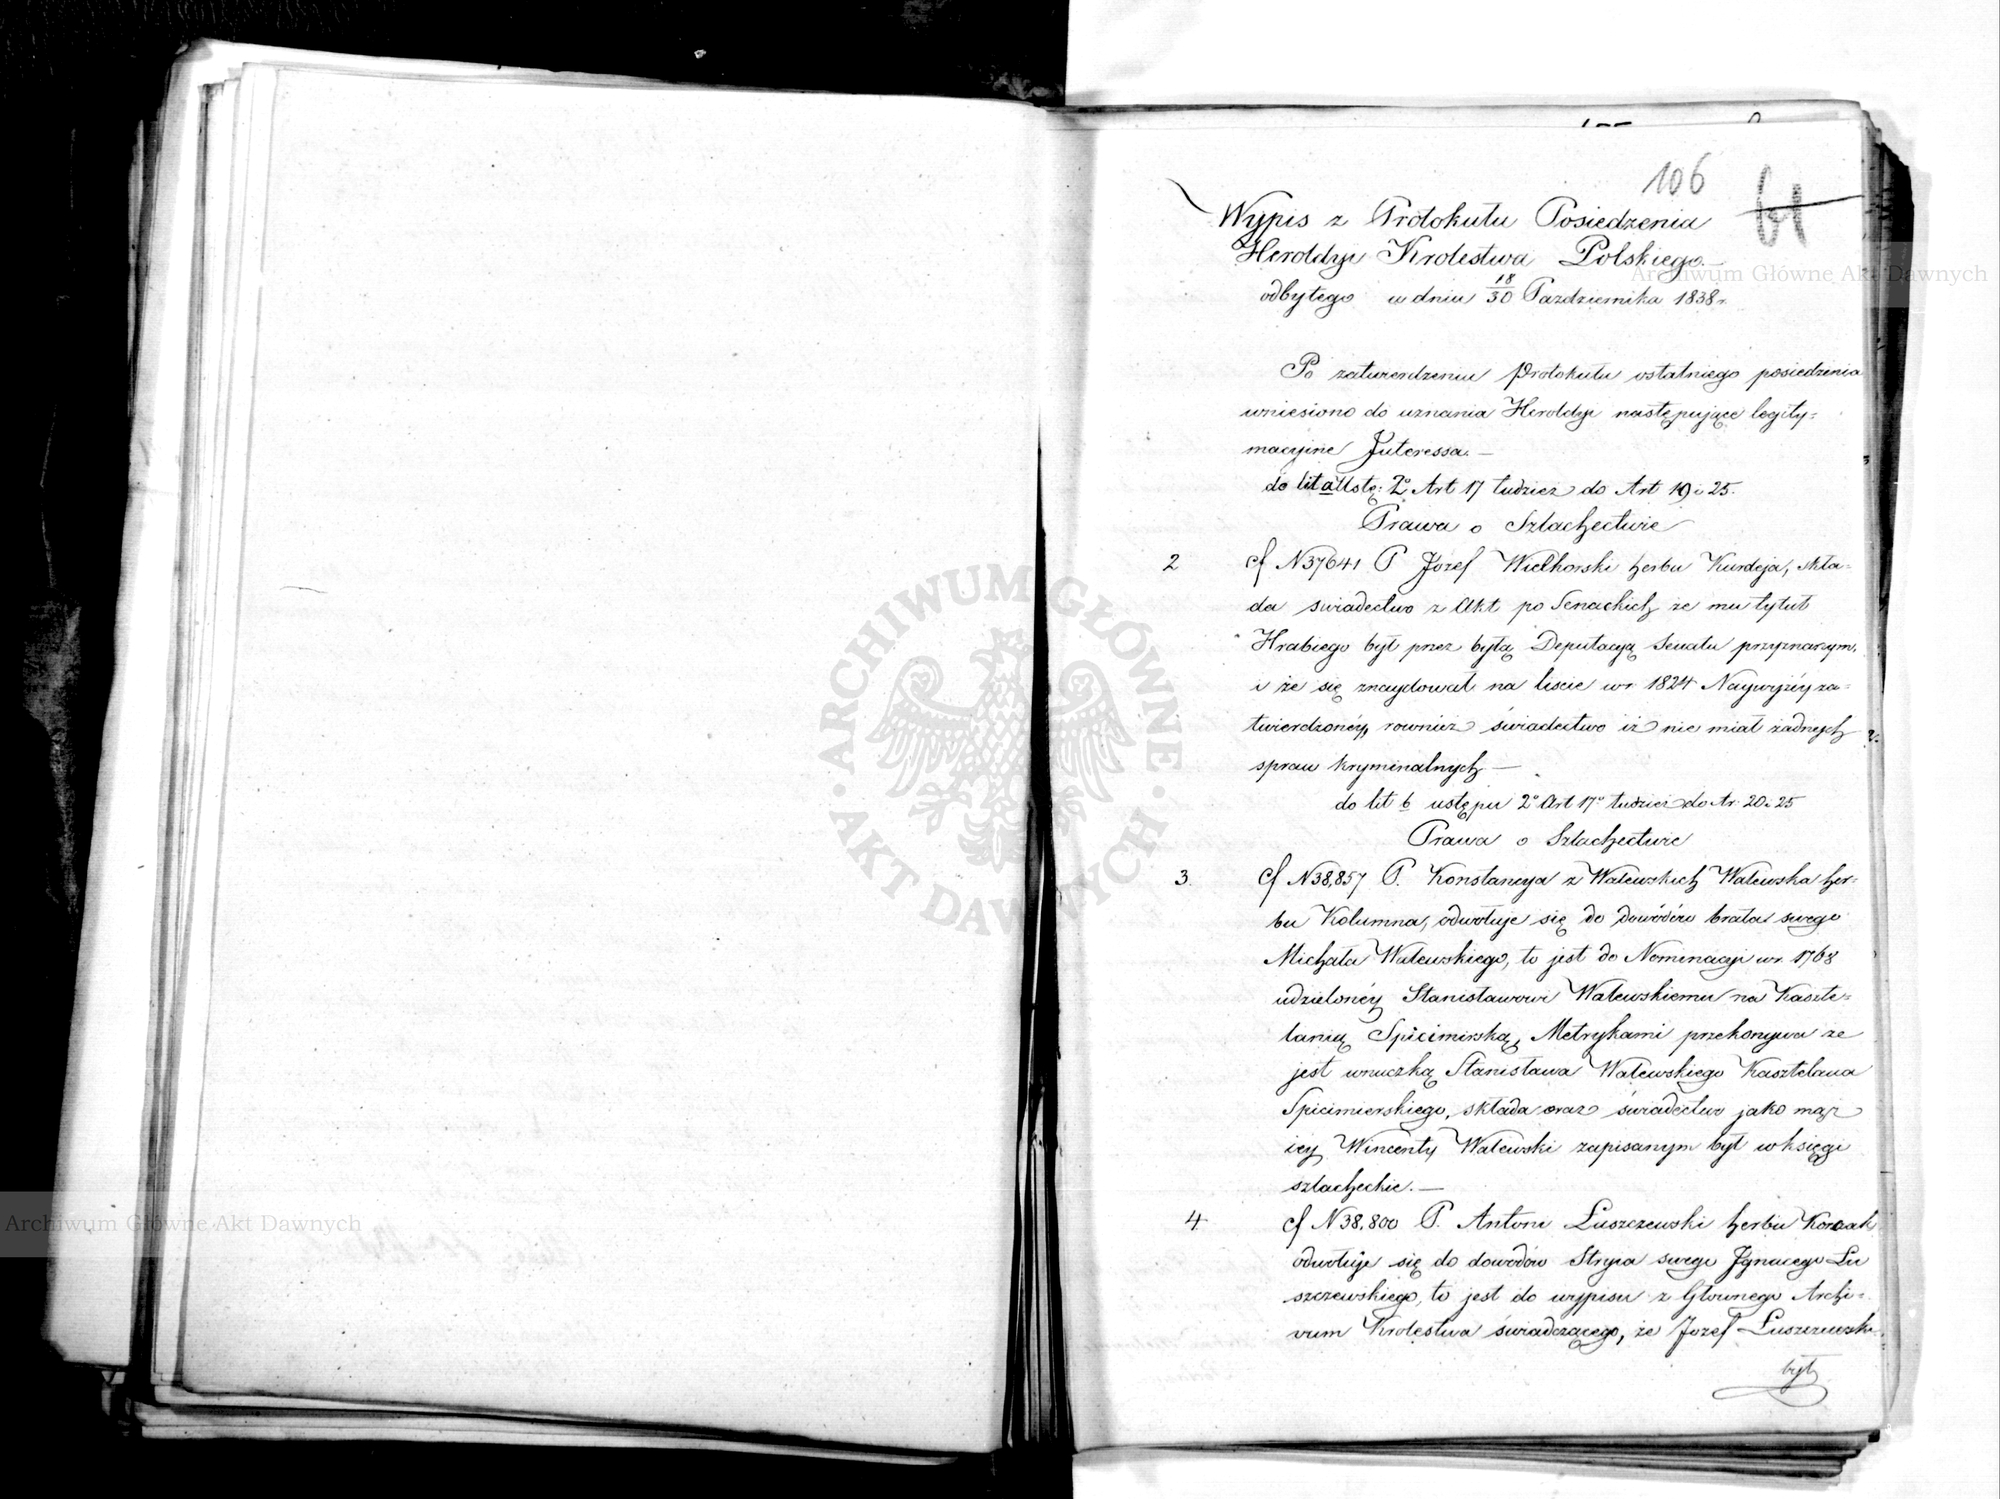 106
61
Wypis z Protokułu Posiedzenia
Heroldyi Krolestwa Polskiego
odbytego w dniu 18/30 Pazdziernika 1838 r.
Po zatwierdzeniu Protokułu ostatniego posiedzenia
wniesiono do uznania Heroldyi następujące legity=
macyjne Interessa. —
do lit a Ustę: 2° Art 17 tudzież do Art 19 i 25.
Prawa o Szlachectwie
2 cf N 37641 P Jozef Wielhorski herbu Kierdeja, skła=
da swiadectwo z Akt po Senackich że mu tytuł
Hrabiego był przez byłą Deputacyą Senatu przyznanym,
i że się znaydował na liscie w r. 1824 Naywyżéy za=
twierdzonéy, rownież świadectwo iż nie miał żadnych
spraw kryminalnych —
do lit b ustępu 2° Art 17° tudzież do Ar. 20 i 25
Prawa o Szlachectwie
3. cf N 38,857 P. Konstancya z Walewskich Walewska her=
bu Kolumna, odwołuje się do dowódów brata swego
Michała Walewskiego, to jest do Nominacyi w r. 1768
udzielonéy Stanisławowi Walewskiemu na Kaszte=
lanią Spicimirską, Metrykami przekonywa że
jest wnuczką Stanisława Walewskiego Kasztelana
Spicimierskiego, składa oraz świadectwo jako mąż
iey Wincenty Walewski zapisanym był w księgi
szlacheckie. —
4. cf N 38,800 P. Antoni Łuszczewski herbu Korczak
odwołuje się do dowodów Stryia swego Ignacego Łu
szczewskiego, to jest do wypisu z Głownego Archi=
vum Krolestwa świadczącego, że Jozef Łuszczewski
był
ARCHIWUM GŁÓWNE · AKT DAWNYCH ·
Archiwum Główne Akt Dawnych
Archiwum Główne Akt Dawnych